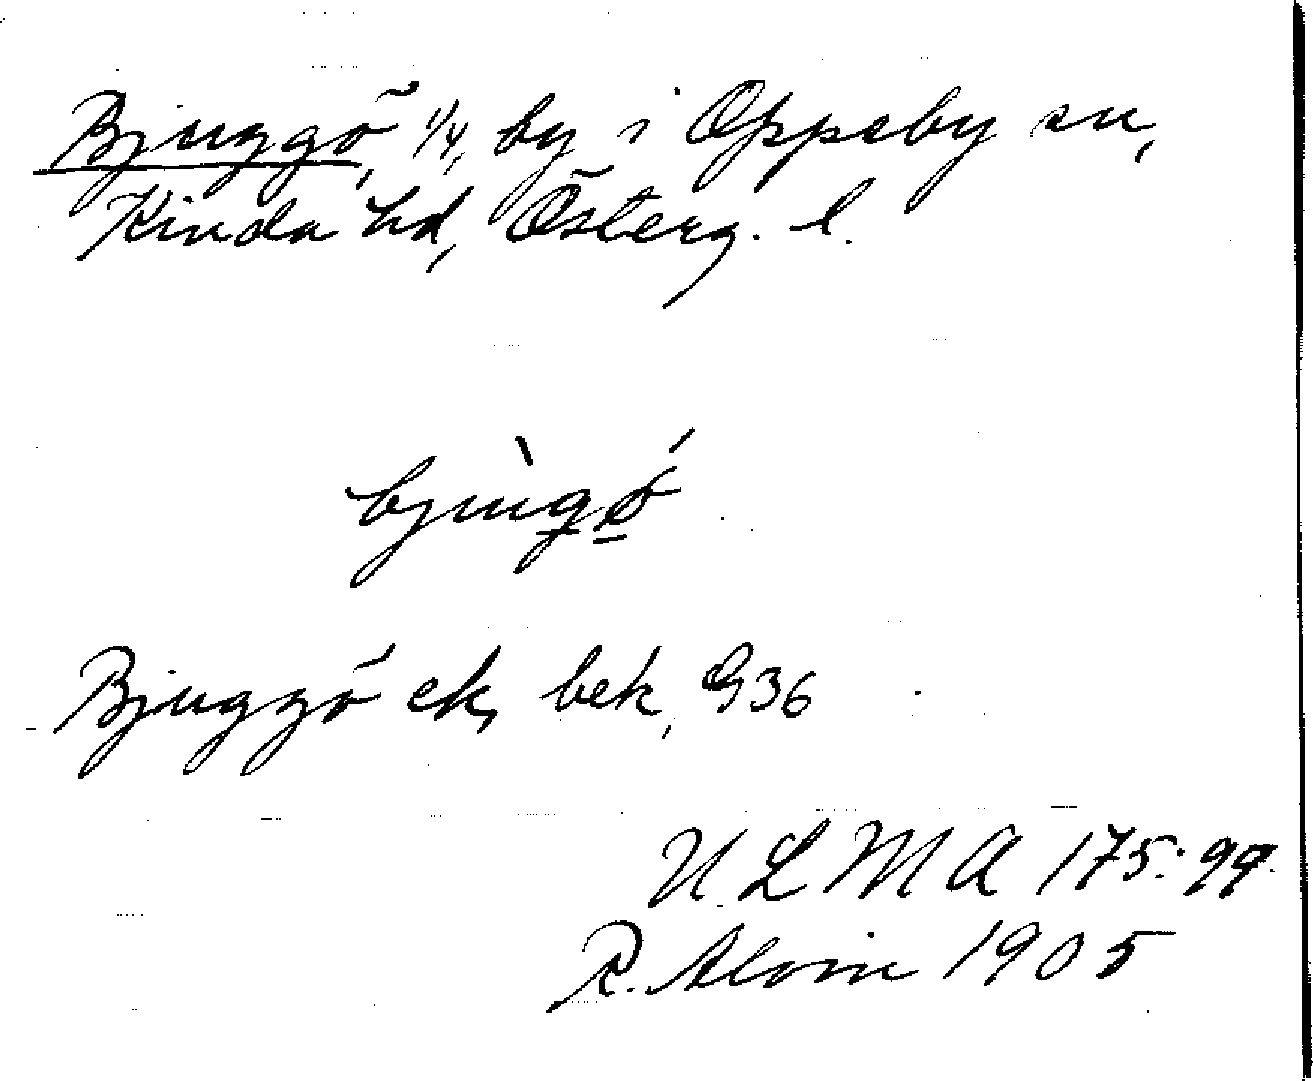 Bjuggö, 1/4, by i Oppeby sn,
Kinda hd, Österg. l.
bjùgǿ
Bjuggö ek, bek, G36
U L M A 175:99.
R. Alvin 1905